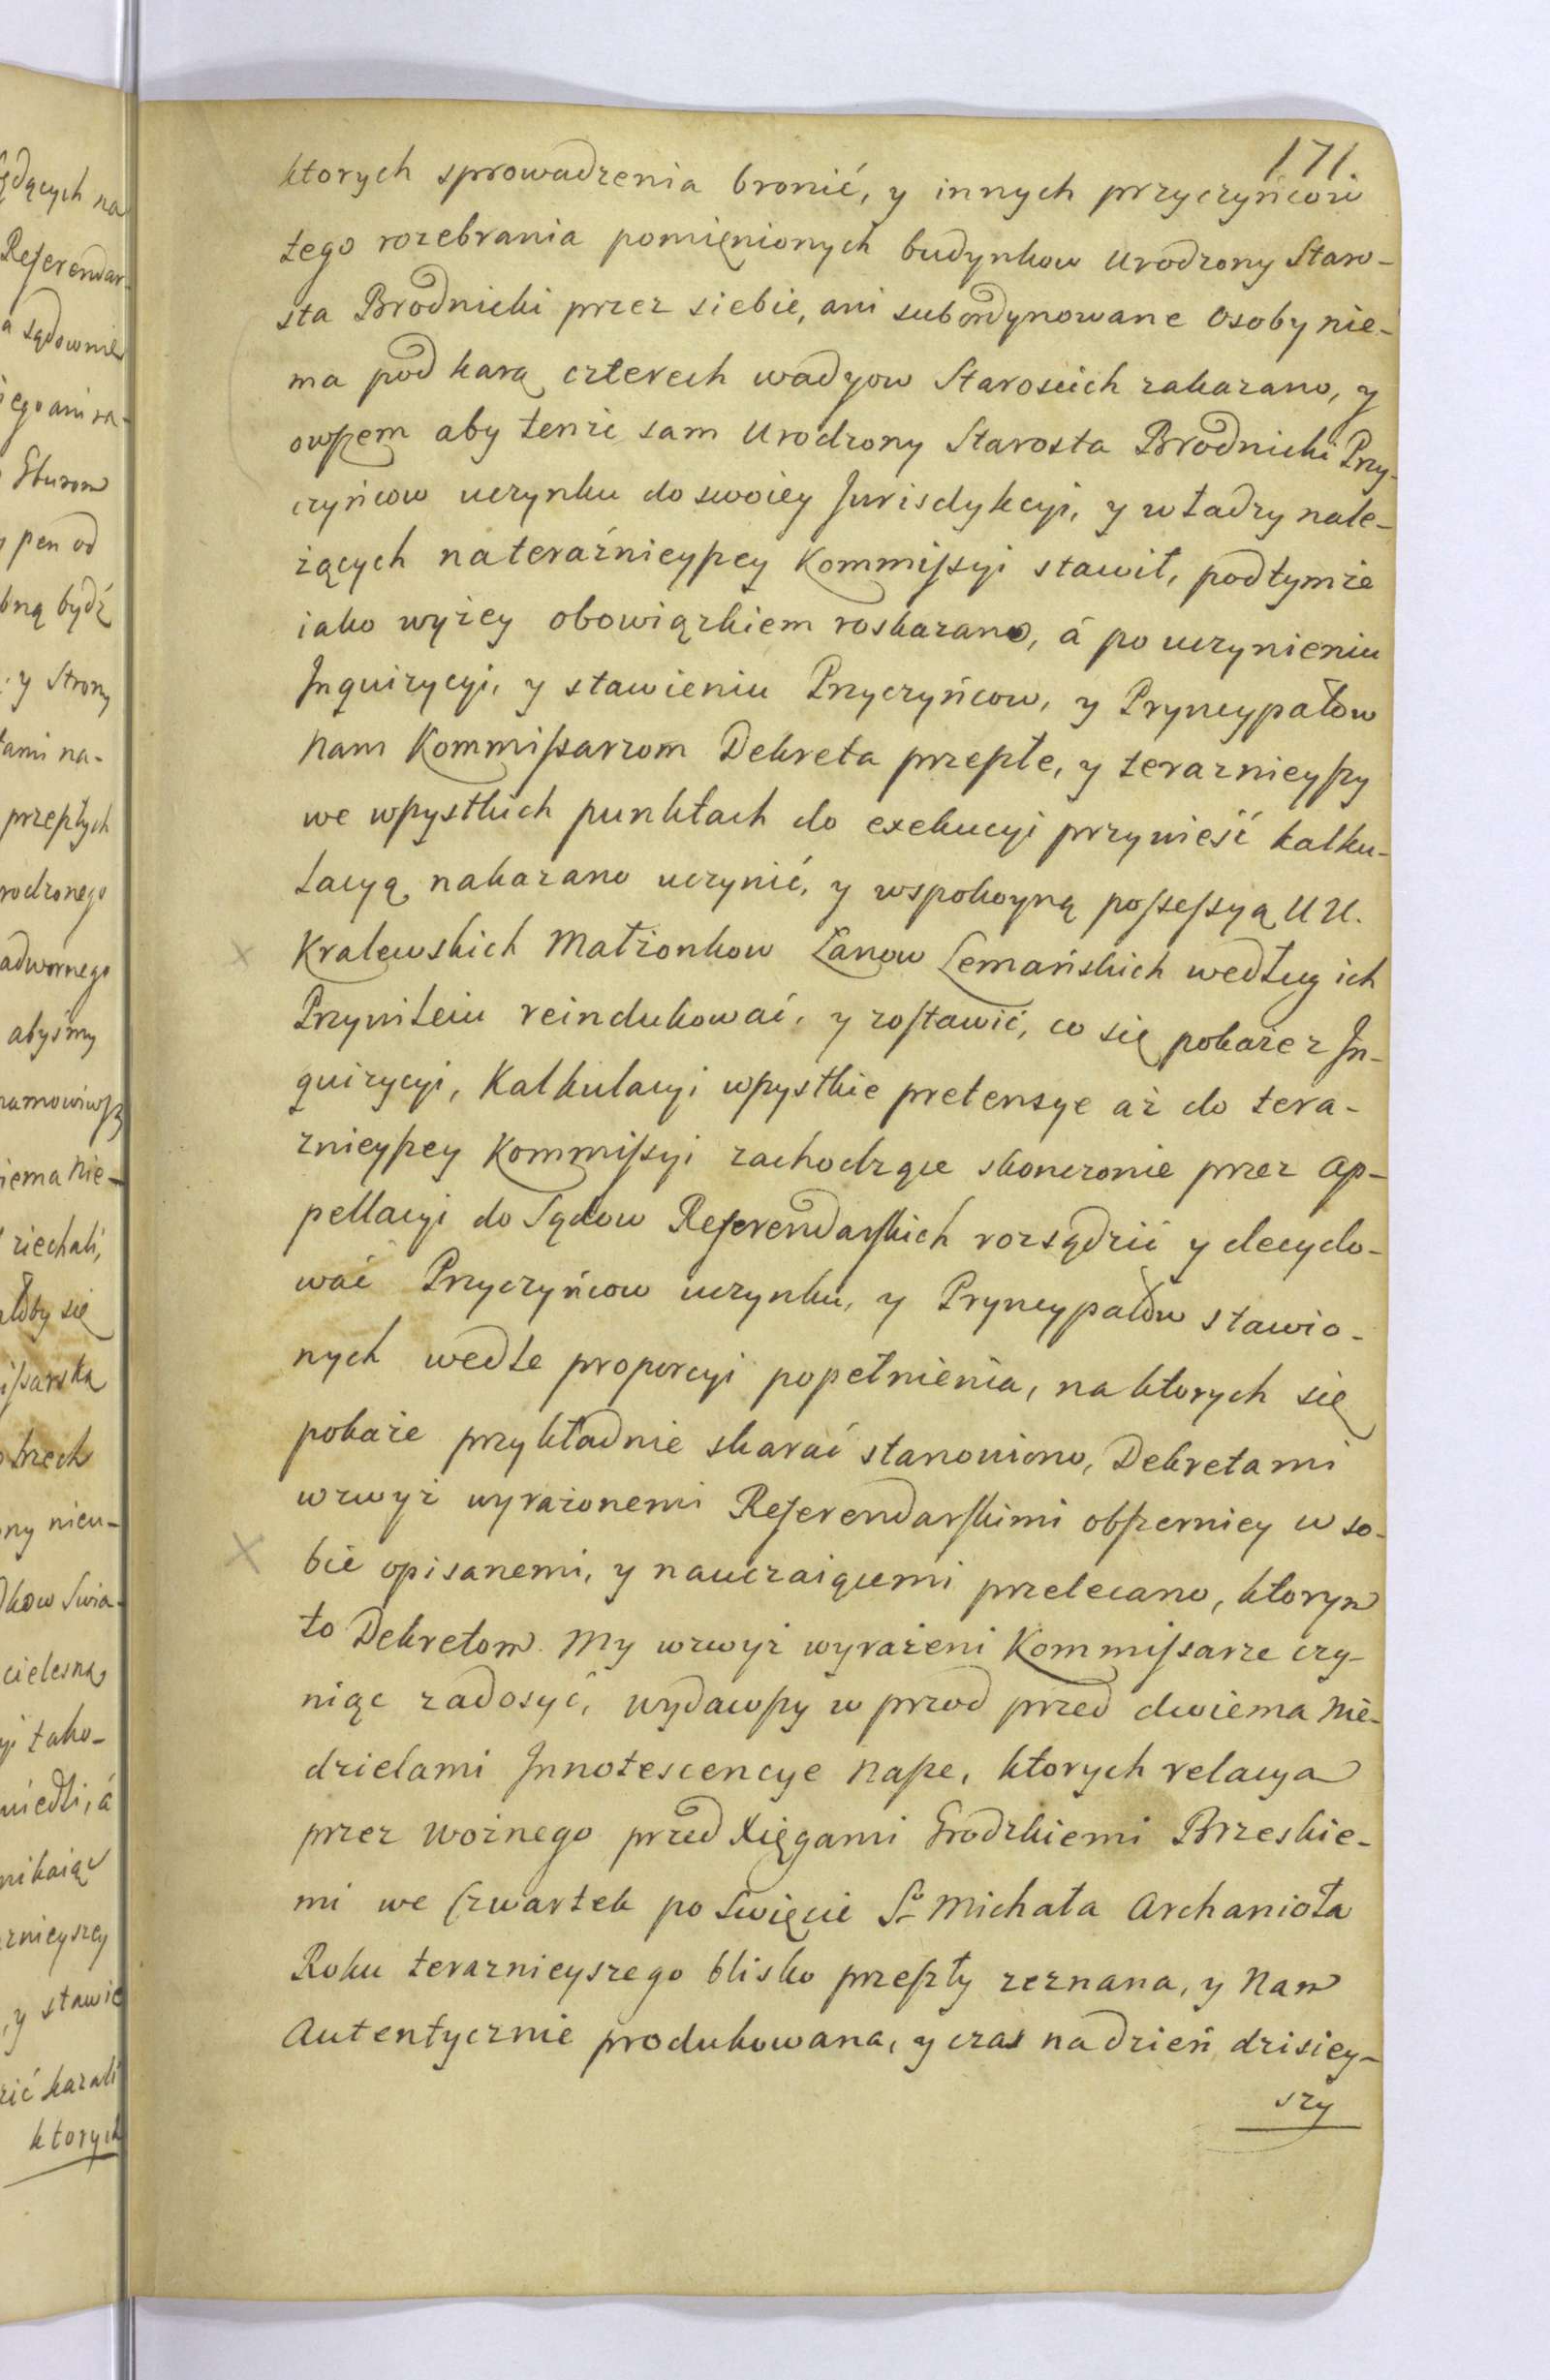 171.
ktorych sprowadzenia bronić, y innych przyczyńcow
tego rozebrania pomięnionych budynkow Urodzony Staro-
sta Brodnicki przez siebie, ani subordynowane Osoby nie-
ma pod karą czterech wadyow Staroscich zakazano, y
owszem aby tenże sam Urodzony Starosta Brodnicki Przy-
czyńcow uczynku do swoiey Jurisdykcyi, y władzy nale-
żących na teraźnieyszey Kommissyi stawił, pod tymże
iako wyżey obowiązkiem roskazano, á po uczynieniu
Inquizycyi, y stawieniu Przyczyńcow, y Pryncypałow
Nam Kommissarzom Dekreta przeszłe, y teraznieyszy
we wszystkich punktach do exekucyi przywieść kalku-
lacyą nakazano uczynić, y wspokoyną possessyą UU.
Kralewskich Małżonkow Łanow Lemańskich według ich
Przywileiu reindukować, y zostawić, co się pokaże z In-
quizycyi, Kalkulacyi wszystkie pretensye aż do tera-
znieyszey Kommissyi zachodzące skonczonie przez Ap-
pellacyi do Sądow Referendarskich rozsądzić y decydo-
wać Przyczyńcow uczynku, y Pryncypałow stawio-
nych wedle proporcyi popełnienia, na ktorych się
pokaże przykładnie skarać stanowiono, Dekretami
wzwyż wyrażonemi Referendarskimi obszerniey w so-
bie opisanemi, y nauczaiącemi przelecano, ktorym
to Dekretom My wzwyż wyrażeni Kommissarze czy-
niąc zadosyć, wydawszy w przod przed dwiema Nie-
dzielami Innotescencye Nasze, ktorych relacya
przez Woźnego przed Xięgami Grodzkiemi Brzeskie-
mi we Czwartek po Swięcie So Michała Archanioła
Roku teraznieyszego blisko przeszły zeznana, y Nam
Autentycznie produkowana, y czas na dzień dzisiey-
szy
ących na
Referendar-
a sądownie
iego ani na-
Gburow
pen od
bną bydź
y Strony
ami na-
przeszłych
rodzonego
adwornego
abyśmy
namowiwszy
iema Nie-
ziechali,
łoby się
issarska
trzech
ny nieu-
kow Swia-
cielesną
yi tako-
wiedli, á
nikaiąc
znieyszey
, y stawić
zić kazali
ktorych